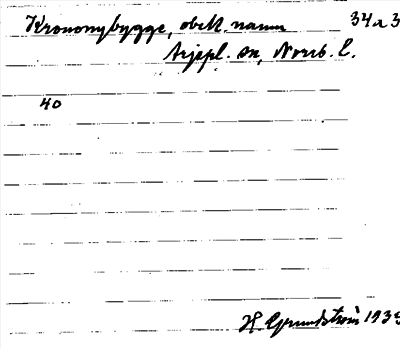 Krononybygge, obekt. namn 34a3
Arjepl. sn, Norrb. l.
40
H. Grundström 193